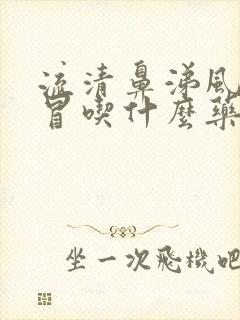 流清鼻涕風
冒喫什麼藥
坐一次飛機吧